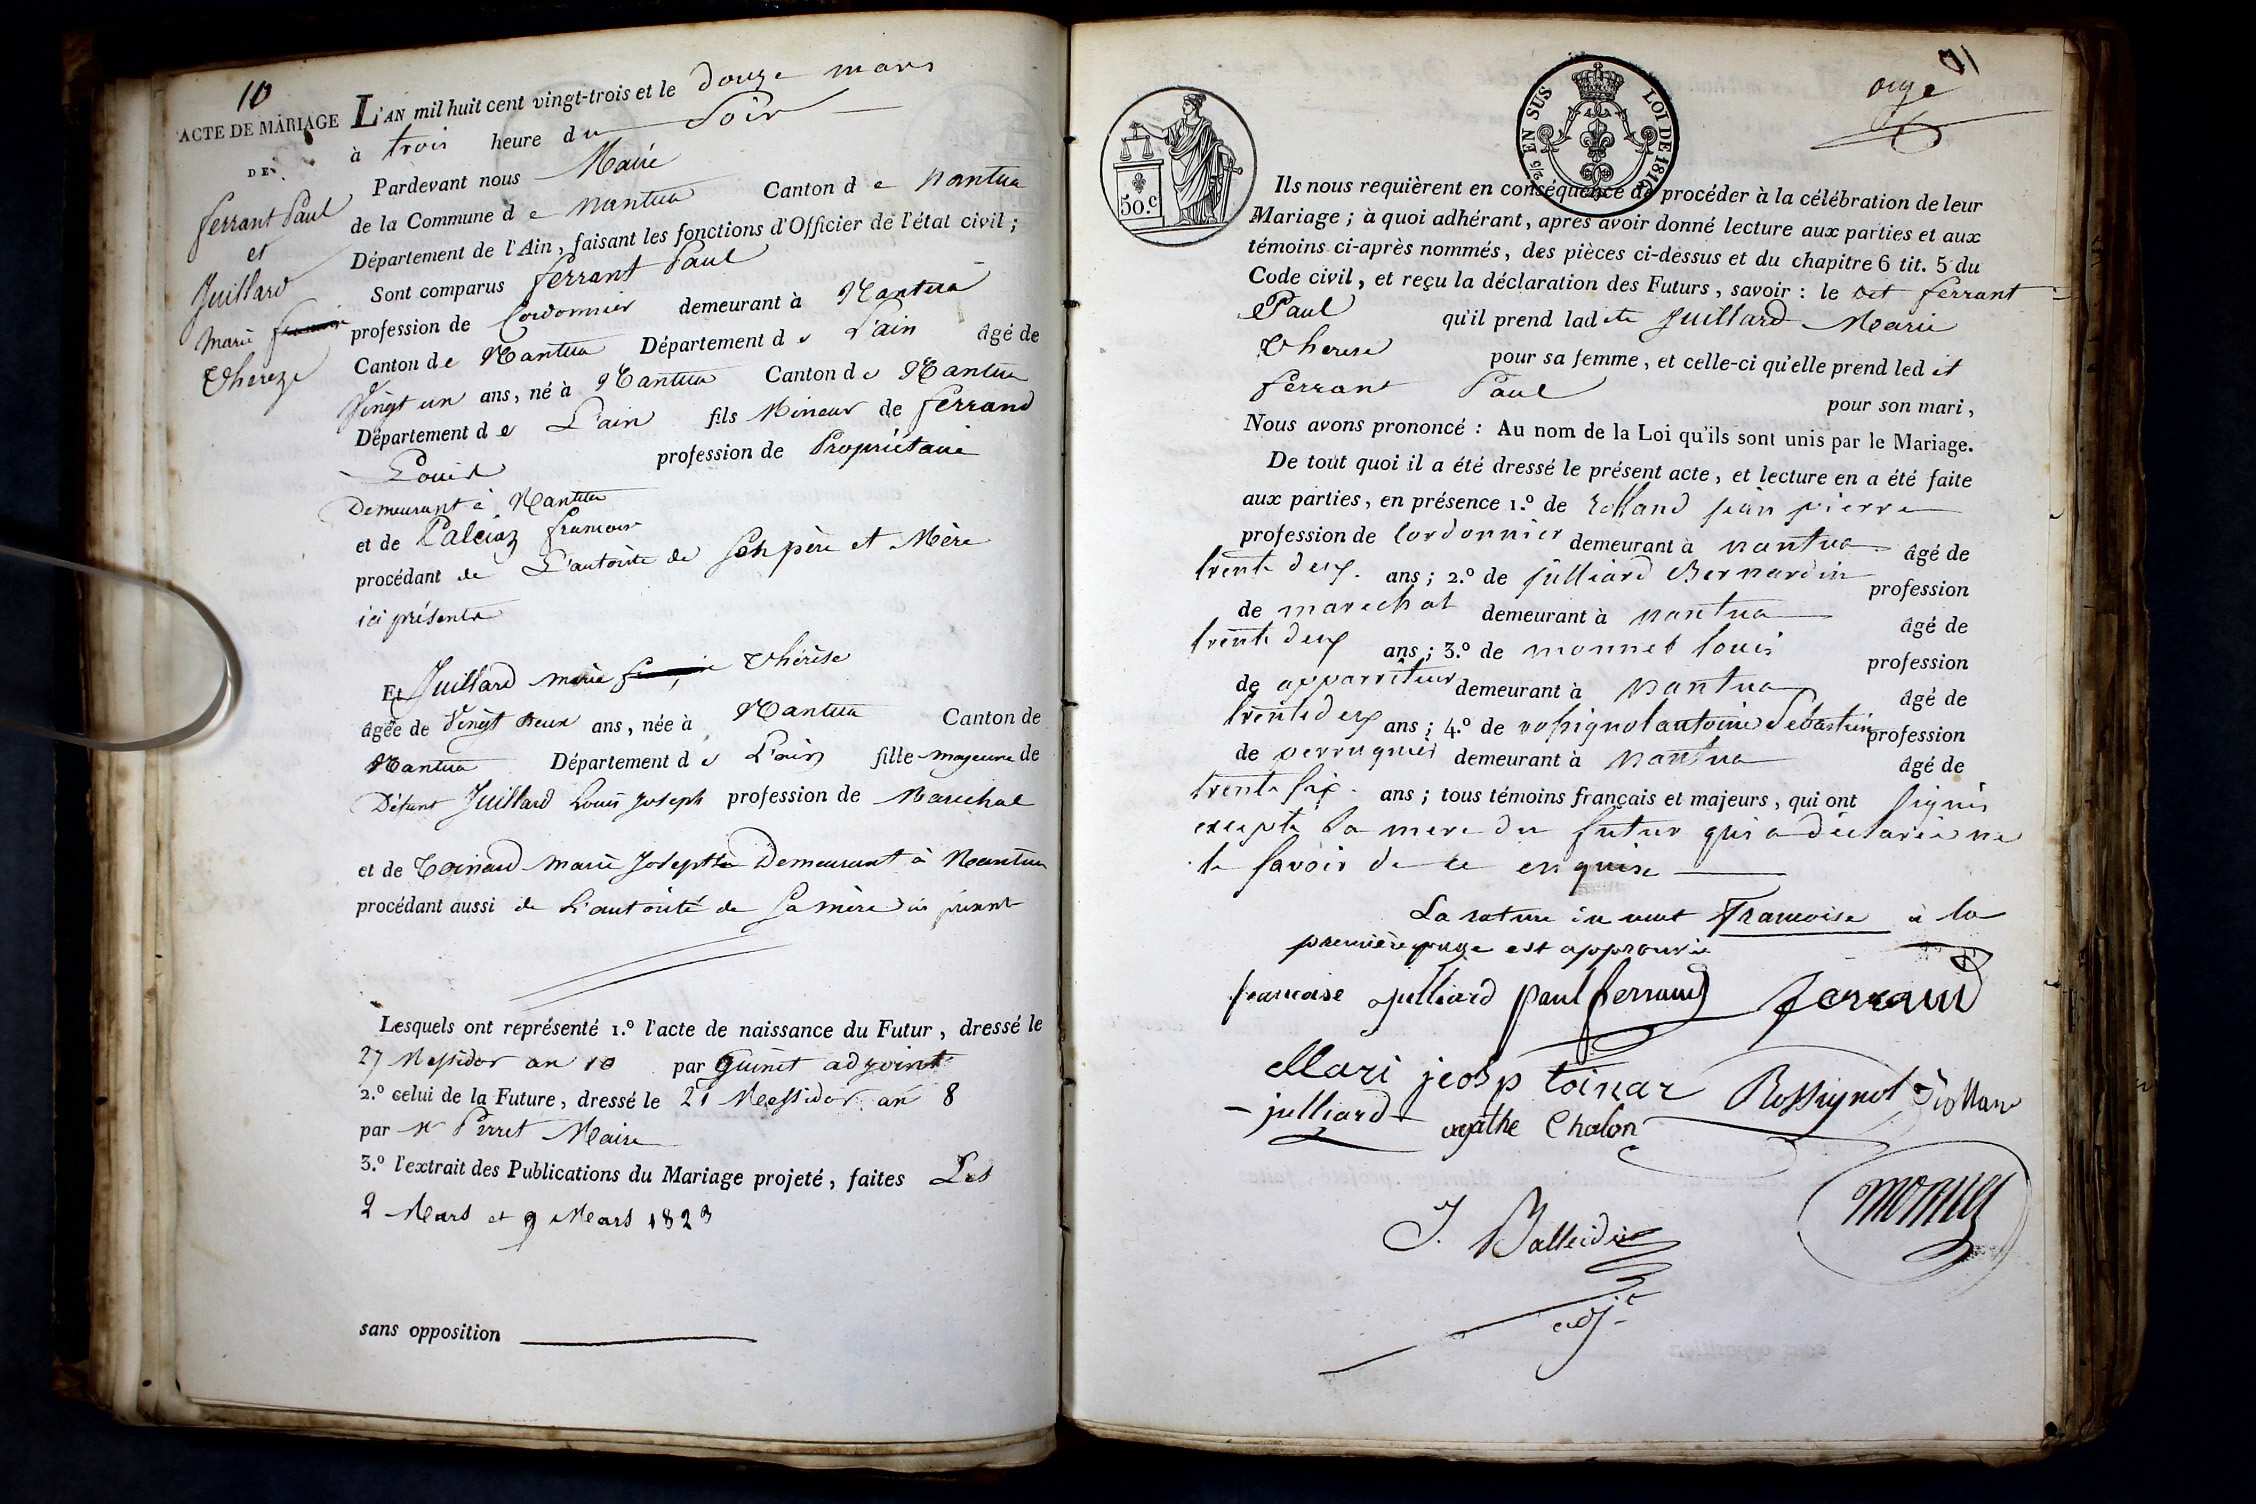 10
ACTE DE MARIAGE
DE
ferrant Paul
et
Juillard
Marie
Thereze
L'AN mil huit cent vingt-trois et le douze mars
à trois heure du Soir
Pardevant nous Maire
de la Commune de nantua Canton de nantua
Département de l'Ain, faisant les fonctions d'Officier de l'état civil;
Sont comparus ferrant Paul
profession de Cordonnier demeurant à Nantua
Canton de Nantua Département de L'ain âgé de
Vingt un ans, né à Nantua Canton de Nantua
Département de L'ain fils Mineur de ferrand
Louis profession de Propriétaire
Demeurant à Nantua
et de francoise
procédant de L'autorité de Son père et Mère
ici présents
Et Juillard marie Thérèse
âgée de Vingt deux ans, née à Nantua Canton de
Nantua Département de L'ain fille majeure de
Défunt Juillard Louis Joseph profession de Marechal
et de Toinard Marie Josephte Demeurant à Nantua
procédant aussi de L'autorité de Sa mère ici présent
Lesquels ont représenté 1.º l'acte de naissance du Futur, dressé le
27 Messidor an 10 par Guinet adjoint
2.º celui de la Future, dressé le 21 Messidor an 8
par Mr Perret Maire
3.º l'extrait des Publications du Mariage projeté, faites Les
2 Mars et 9 Mars 1823
sans opposition
11
onze
50.c
2/25 EN SUS
LOI DE 1816
Ils nous requièrent en conséquence de procéder à la célébration de leur
Mariage; à quoi adhérant, après avoir donné lecture aux parties et aux
témoins ci-après nommés, des pièces ci-dessus et du chapitre 6 tit. 5 du
Code civil, et reçu la déclaration des Futurs, savoir: le dit ferrant
Paul qu'il prend ladite Juillard Marie
Therese pour sa femme, et celle-ci qu'elle prend ledit
ferrant Paul pour son mari,
Nous avons prononcé: Au nom de la Loi qu'ils sont unis par le Mariage.
De tout quoi il a été dressé le présent acte, et lecture en a été faite
aux parties, en présence 1.º de Rolland jean pierre
profession de cordonnier demeurant à nantua âgé de
trente deux ans; 2.º de julliard Bernardin profession
de marechal demeurant à nantua âgé de
trente deux ans; 3.º de monnet louis profession
de apparriteur demeurant à nantua âgé de
trente deux ans; 4.º de rossignol antoine Sebastien profession
de perruquier demeurant à nantua âgé de
trente six ans; tous témoins français et majeurs, qui ont signés
excepté la mere du futur qui a déclarée ne
le savoir de ce enquise
La rature du mot francoise à la
première page est approuvée
francoise julliard paul ferrand ferrand
Mari jeosp toinar Rossignol Rollan
julliard agathe Chalon
monnet
J. Balleidier
adj.t